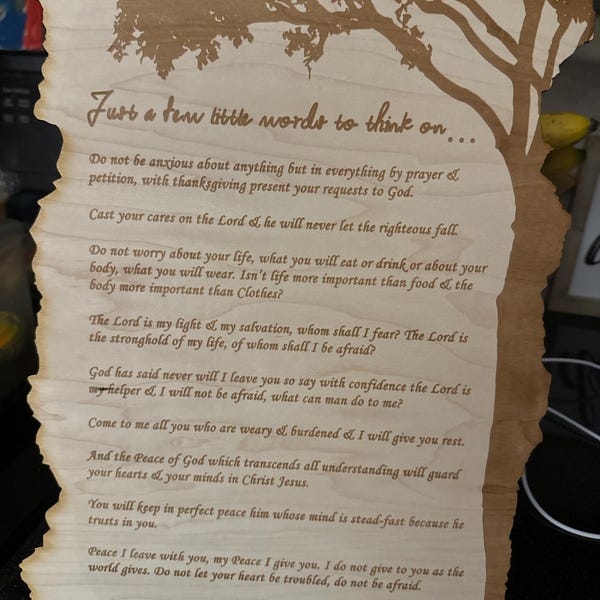 Just a few little words to think on...
Do not be anxious about anything but in everything by prayer &
petition, with thanksgiving present your requests to God.
Cast your cares on the Lord & he will never let the righteous fall.
Do not worry about your life, what you will eat or drink or about your
body, what you will wear. Isn't life more important than food & the
body more important than Clothes?
The Lord is my light & my salvation, whom shall I fear? The Lord is
the stronghold of my life, of whom shall I be afraid?
God has said never will I leave you so say with confidence the Lord is
my helper & I will not be afraid, what can man do to me?
Come to me all you who are weary & burdened & I will give you rest.
And the Peace of God which transcends all understanding will guard
your hearts & your minds in Christ Jesus.
You will keep in perfect peace him whose mind is stead-fast because he
trusts in you.
Peace I leave with you, my Peace I give you. I do not give to you as the
world gives. Do not let your heart be troubled, do not be afraid.